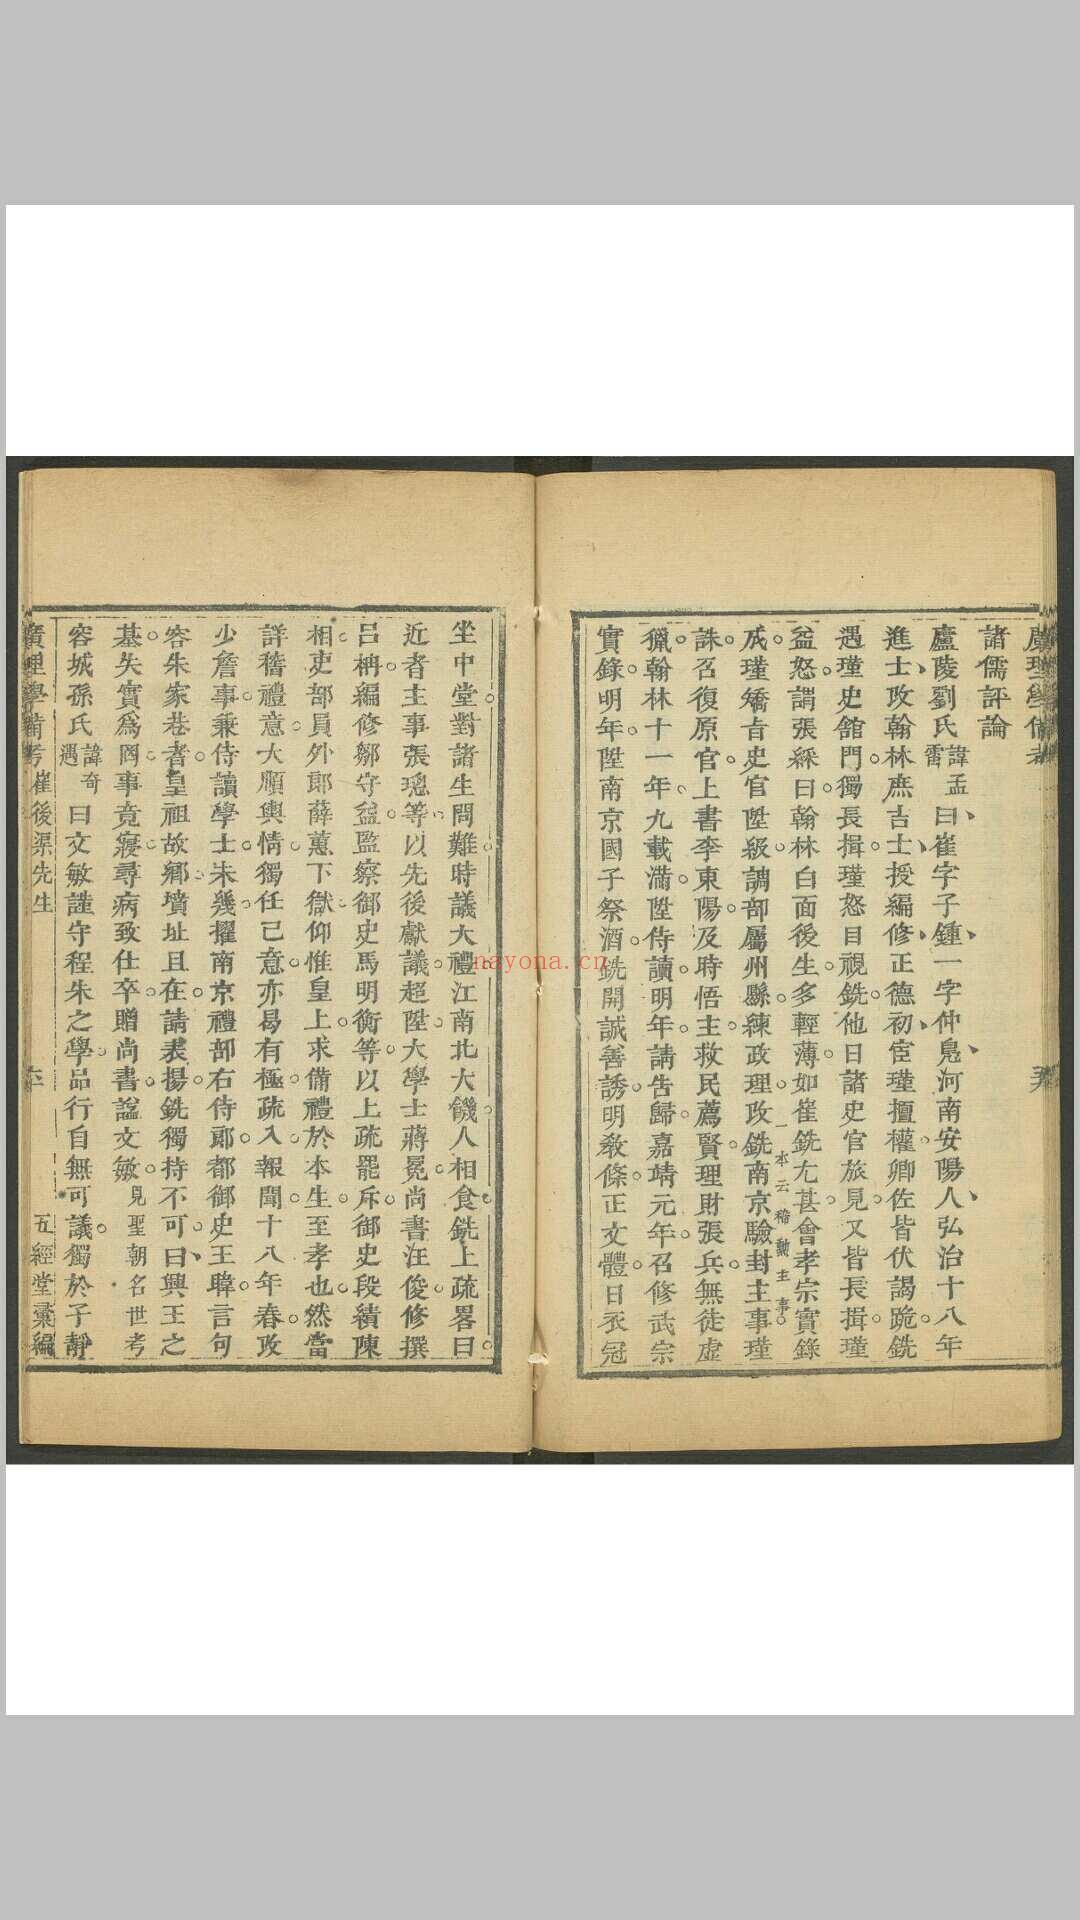 廣理學備考
諸儒評論
廬陵劉氏諱孟雷曰崔字子鍾一字仲鳧河南安陽人弘治十八年
進士改翰林庶吉士授編修正德初宦瑾擅權卿佐皆伏謁跪銑
遇瑾史館門獨長揖瑾怒目視銑他日諸史官旅見又皆長揖瑾
益怒謂張綵曰翰林白面後生多輕薄如崔銑尢甚會孝宗實錄
成瑾矯旨史官陞級調部屬州縣練政理改銑南京驗封主事一本云稽勳主事瑾
誅召復原官上書李東陽及時悟主救民薦賢理財張兵無徒虛
獵翰林十一年九載滿陞侍讀明年請告歸嘉靖元年召修武宗
實錄明年陞南京國子祭酒銑開誠善誘明敎條正文體日衣冠
坐中堂對諸生問難時議大禮江南北大饑人相食銑上疏畧曰
近者主事張璁等以先後獻議超陞大學士蔣冕尚書汪俊修撰
呂柟編修鄒守益監察御史馬明衡等以上疏罷斥御史段續陳
相吏部員外郎薛蕙下獄仰惟皇上求備禮於本生至孝也然當
詳稽禮意大順輿情獨任己意亦曷有極疏入報聞十八年春改
少詹事兼侍讀學士未幾擢南京禮部右侍郎都御史王暐言句
容朱家巷者皇祖故鄉墳址且在請表揚銑獨持不可曰興王之
基失實爲罔事竟寢尋病致仕卒贈尚書謚文敏見聖朝名世考
容城孫氏諱奇遇曰文敏謹守程朱之學品行自無可議獨於子靜
廣理學備考 崔後渠先生 五經堂彙編
nayona.cn